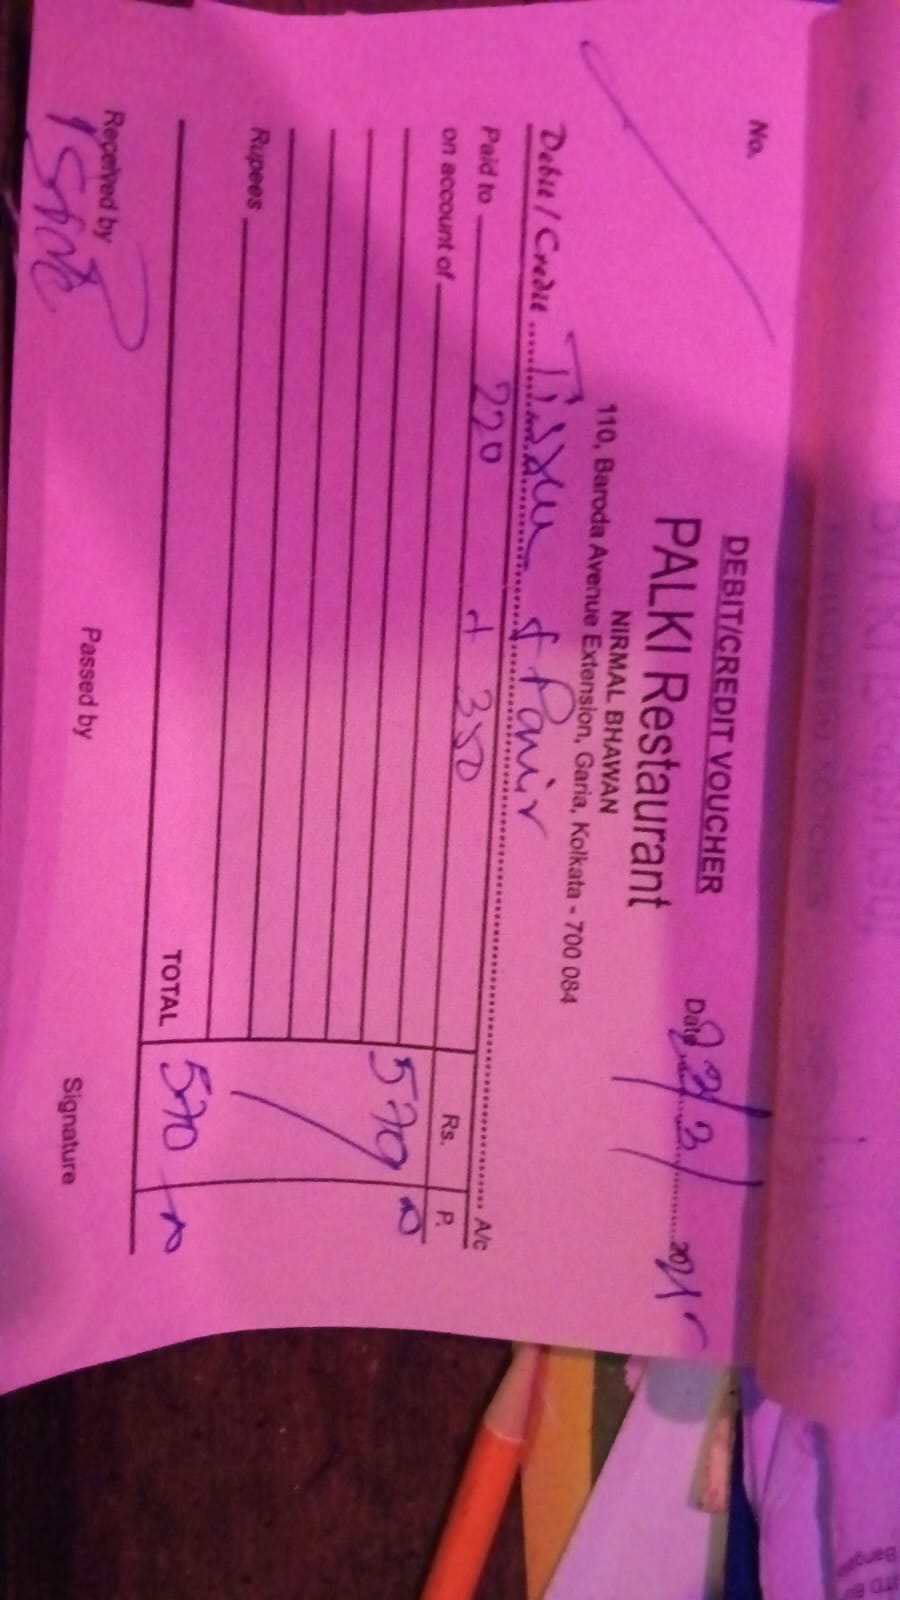 No.
DEBIT/CREDIT VOUCHER
PALKI Restaurant
NIRMAL BHAWAN
110, Baroda Avenue Extension, Garia, Kolkata - 700 084
Date 23/3/
Debit / Credit Tissue & Panir A/c
Paid to 220 + 350
on account of Rs. P.
570
Rupees
TOTAL 570
Received by Passed by Signature